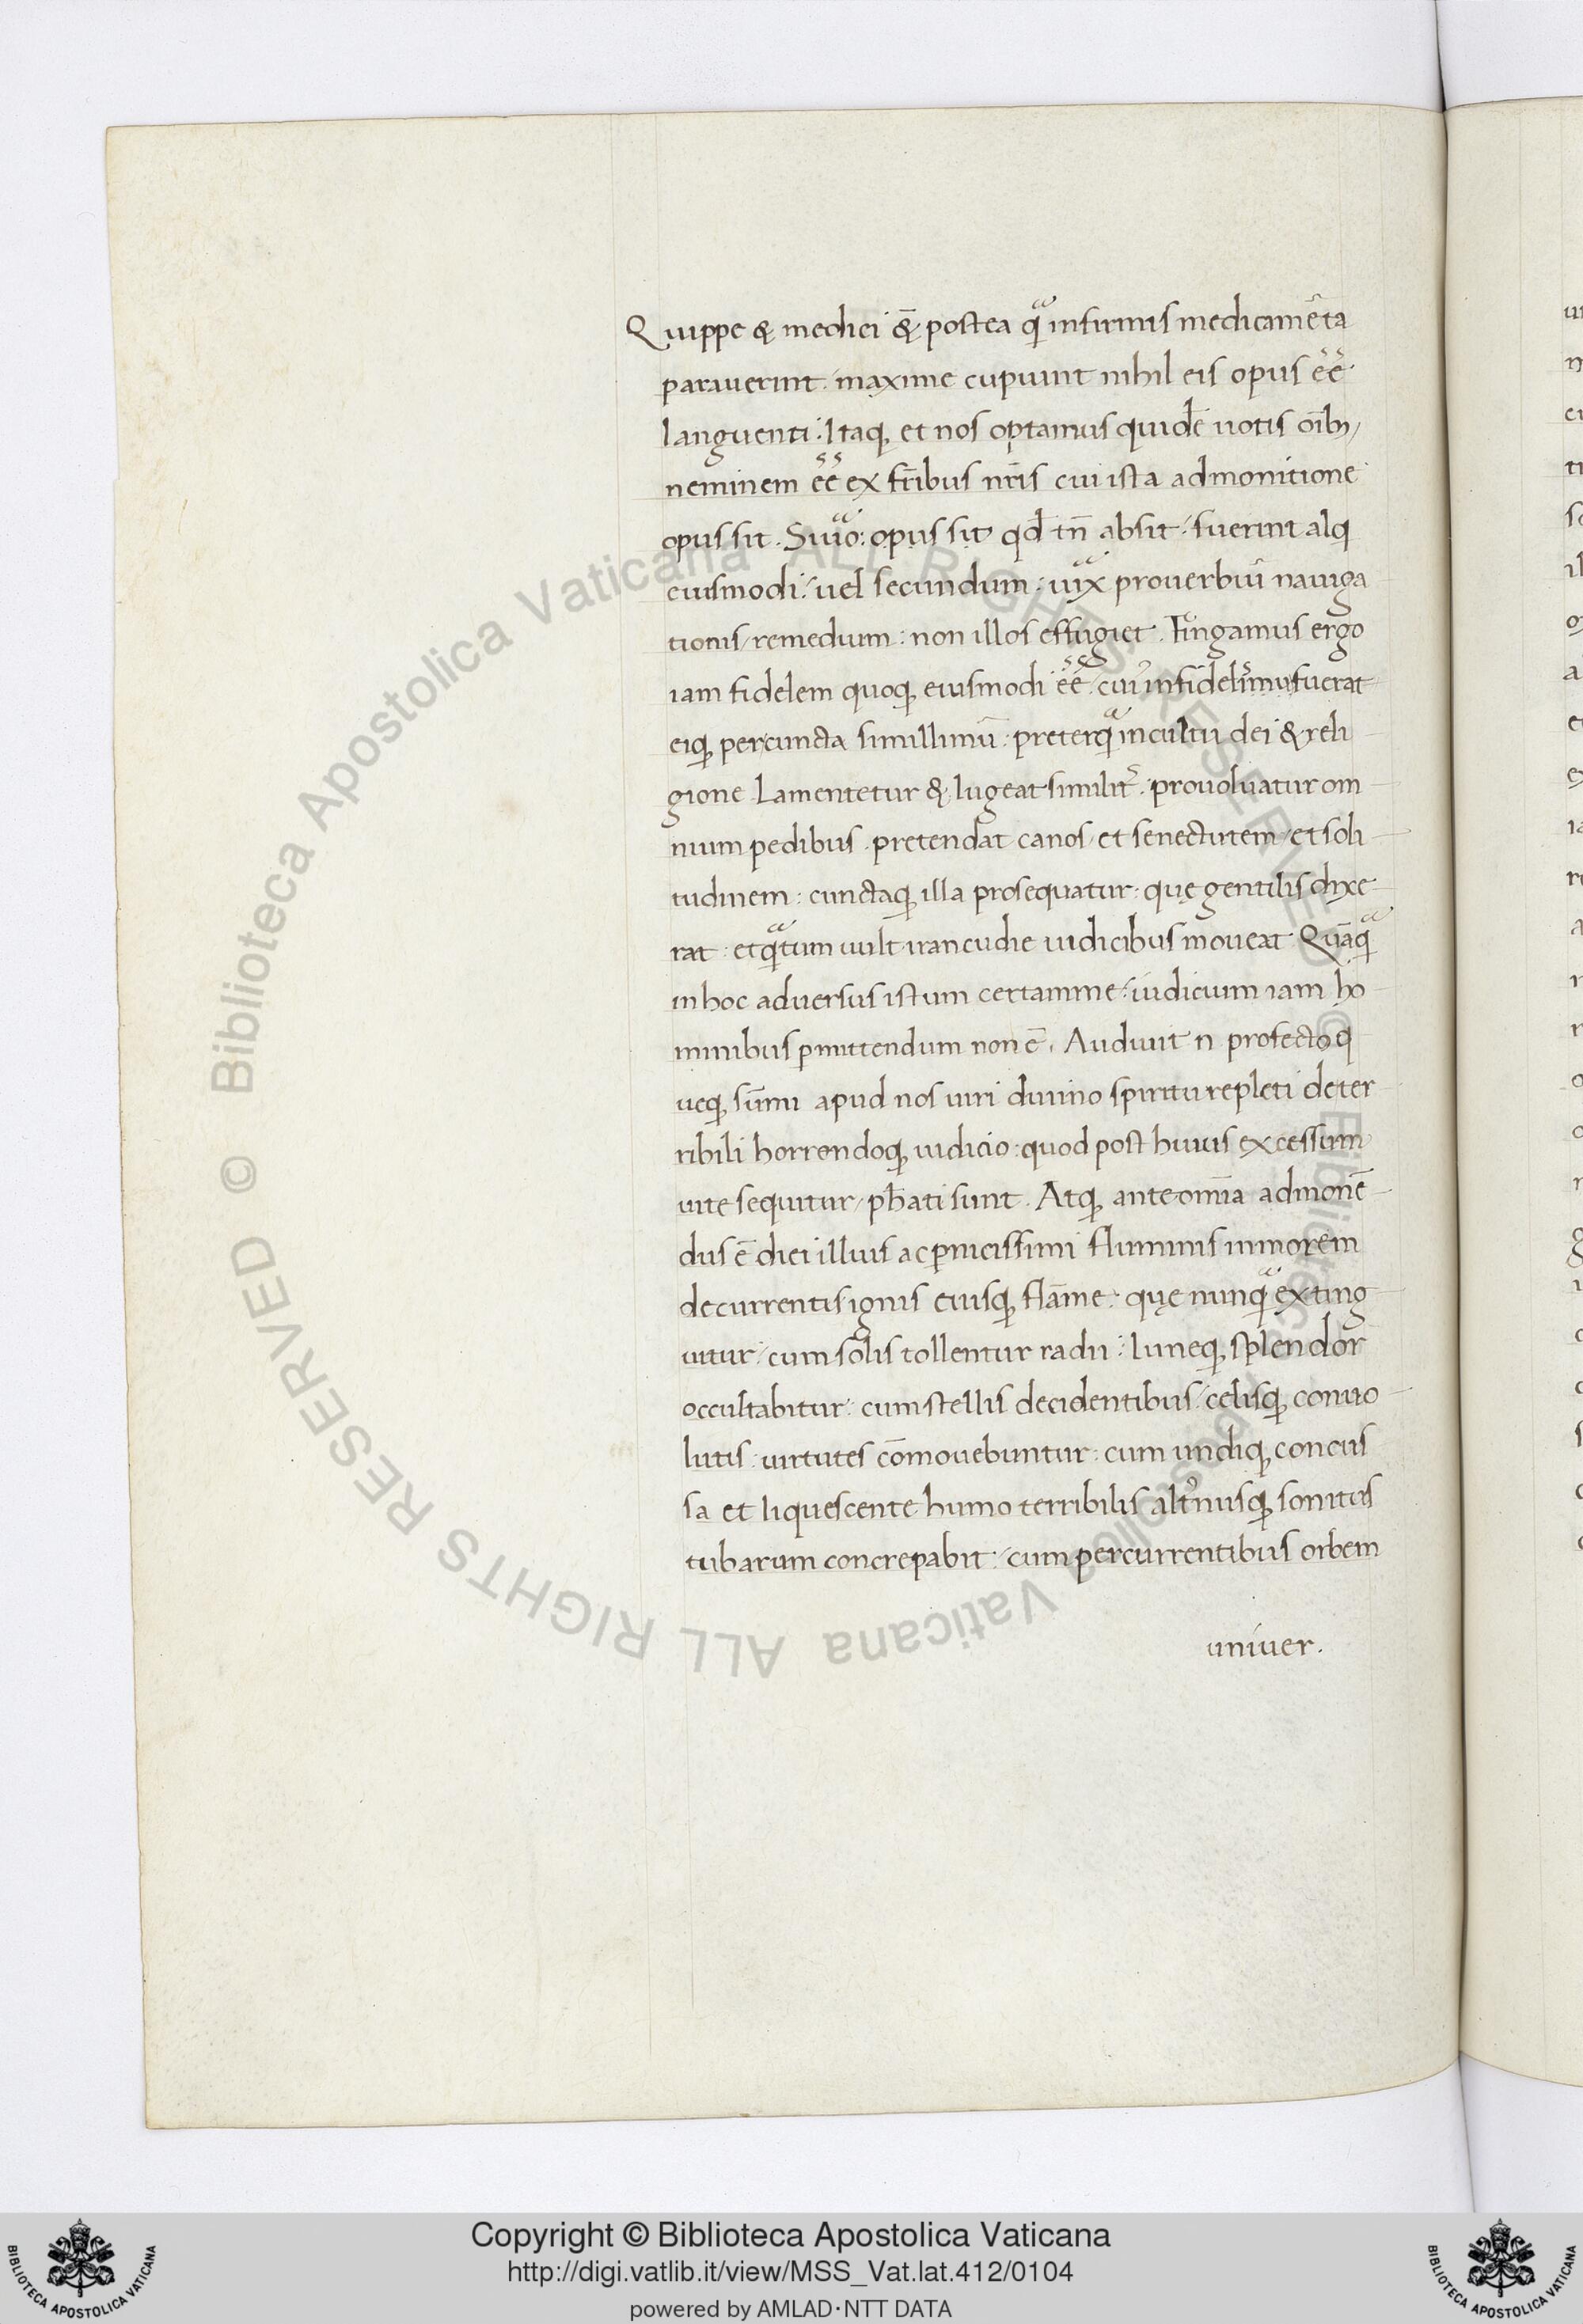 Quippe & medici &̄ postea qͣ infirmis medicamēta
parauerint: maxime cupiunt nihil eis opus eē
languenti. Itaq; et nos optamus quidē uotis oībꝫ
neminem eē ex fr̄ibus nr̄is cui ista admonitione
opus sit. Siuͦo: opus sit qd̄ tn̄ absit: fuerint alq
eiusmodi: uel secundum: uix prouerbiū nauiga
tionis remedium: non illos effugiet. Fingamus ergo
iam fidelem quoq; eiusmodi eē: cui' infidelissimus fuerat
eiq; per cuncta simillimū: preterqͣ in cultu dei & reli
gione Lamentetur & lugeat similit̉. prouoluatur om
nium pedibus. pretendat canos et senectutem et soli
tudinem: cunctaq; illa prosequatur: quę gentilis dixe
rat: et qͣtum uult iracūdie iudicibus moueat Quāqͣ
in hoc aduersus istum certamine: iudicium iam ho
minibus ꝑmittendum non ē. Audiuit n̄ profecto q
ueq; sūmi apud nos uiri diuino spiritu repleti de ter
ribili horrendoq; iudicio: quod post huius excessum
uite sequitur, ꝓhati sunt. Atq; ante omīa admonē
dus ē diei illius ac ꝑnicissimi fluminis in morem
decurrentis ignis eiusq; flāme: quę nunqͣ exting
uitur: cum solis tollentur radii: luneq; splendor
occultabitur: cum stellis decidentibus: celisq; conuo
lutis: uirtutes cōmouebuntur: cum undiq; concus
sa et liquescente humo terribilis alt̉nusq; sonitus
tubarum concrepabit: cum percurrentibus orbem
uniuer.
© Biblioteca Apostolica Vaticana ALL RIGHTS RESERVED © Biblioteca Apostolica Vaticana ALL RIGHTS RESERVED
BIBLIOTECA APOSTOLICA VATICANA
Copyright © Biblioteca Apostolica Vaticana
http://digi.vatlib.it/view/MSS_Vat.lat.412/0104
powered by AMLAD·NTT DATA
BIBLIOTECA APOSTOLICA VATICANA